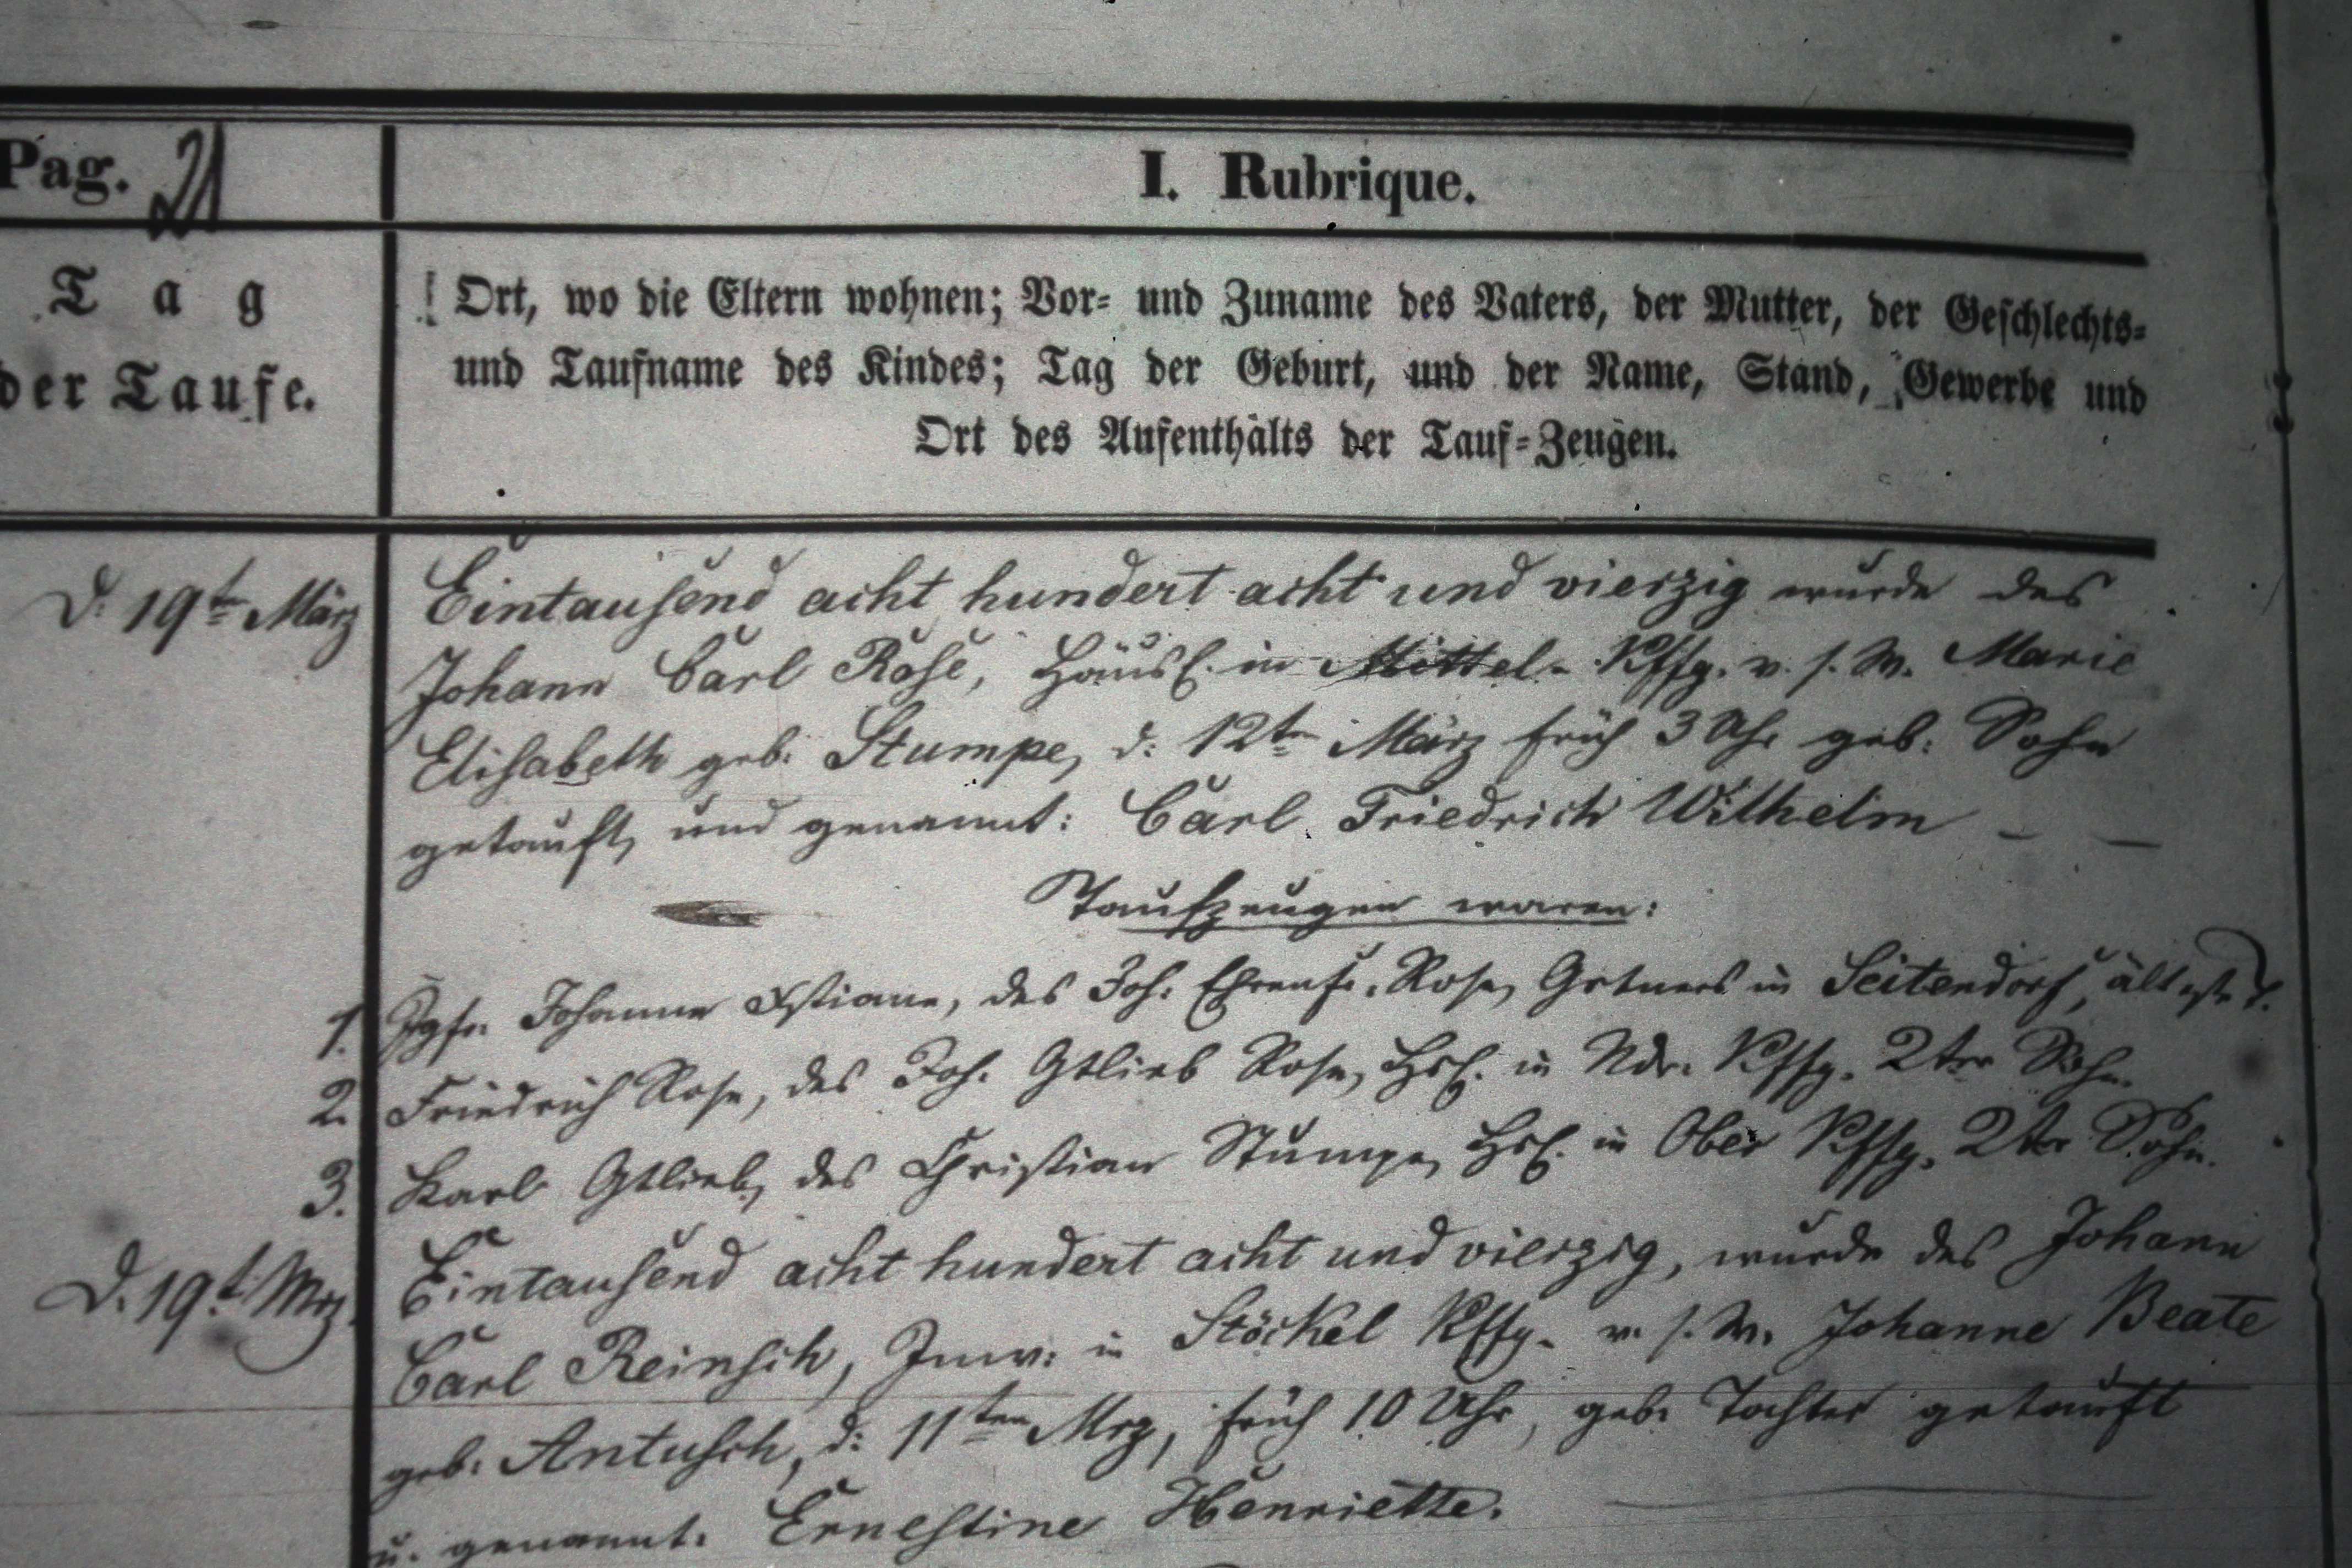 Pag. 21
I. Rubrique.
Tag
der Taufe.
Ort, wo die Eltern wohnen; Vor- und Zuname des Vaters, der Mutter, der Geschlechts-
und Taufname des Kindes; Tag der Geburt, und der Name, Stand, Gewerbe und
Ort des Aufenthalts der Tauf-Zeugen.
D. 19t März
Eintausend acht hundert acht und vierzig wurde des
Johann Carl Rose, Häusl. in Mittel-Kffg. v. s. W. Marie
Elisabeth geb. Stumpe, d: 12tn März früh 3 Uhr geb: Sohn
getauft, und genannt: Carl Friedrich Wilhelm — —
Taufzeugen waren:
1. Jgfr. Johanne Xstiane, des Joh: Ehrenfr. Rose, Grtners in Seitendorf, älteste T.
2. Friedrich Rose, des Joh. Gtlieb Rose, Hsl. in Ndr. Kffg. 2ter Sohn.
3. Karl Gtlieb, des Christian Stumpe, Hsl. in Ober Kffg. 2ter Sohn.
D. 19t. Mrz.
Eintausend acht hundert acht und vierzig, wurde des Johann
Carl Reinsch, Inw: in Stöckel Kffg. v. s. W. Johanne Beate
geb. Antusch, d: 11ten Mrz, früh 10 Uhr, geb. Tochter getauft
u. genannt. Ernestine Henriette.